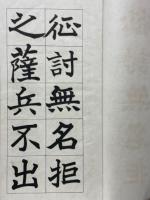 征討無名拒
之薩兵不出